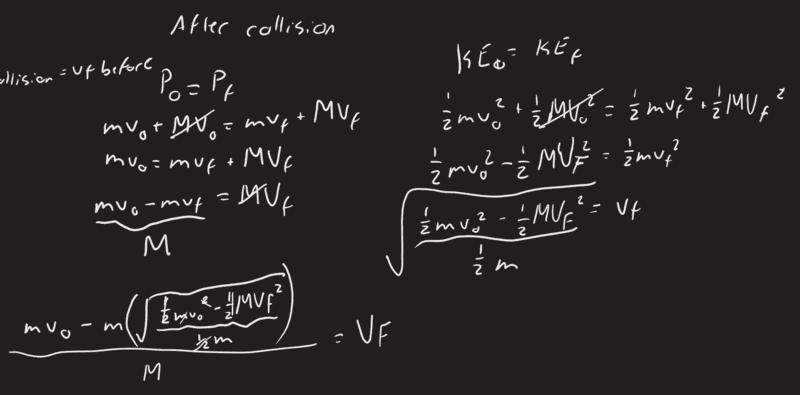 After collision
= vf before
P₀ = P_f
mv₀ + MV₀ = mv_f + MV_f
mv₀ = mv_f + MV_f
(mv₀ - mv_f) / M = MV_f
(mv₀ - m(√((½mv₀² - ½MV_f²) / ½m))) / M = V_F
KE₀ = KE_f
½mv₀² + ½MV₀² = ½mv_f² + ½MV_f²
½mv₀² - ½MV_F² = ½mv_f²
√((½mv₀² - ½MV_F²) / ½m) = v_f